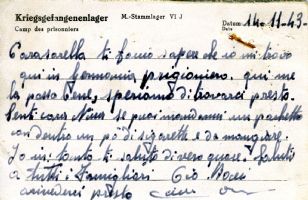 Kriegsgefangenenlager M.-Stammlager VI J
Camp des prisonniers
Datum: 14-11-43-
Date
Cara sorella ti faccio sapere che io mi trovo
qui in Germania prigioniero. qui me
la passo bene, speriamo di trovarci presto.
Senti cara se puoi mandami un pachetto
con dentro un pò di sigarette e da mangiare.
Io in tanto ti saluto di vero quore. Saluti
a tutti i famigliari Ciò Baci
arivederci presto